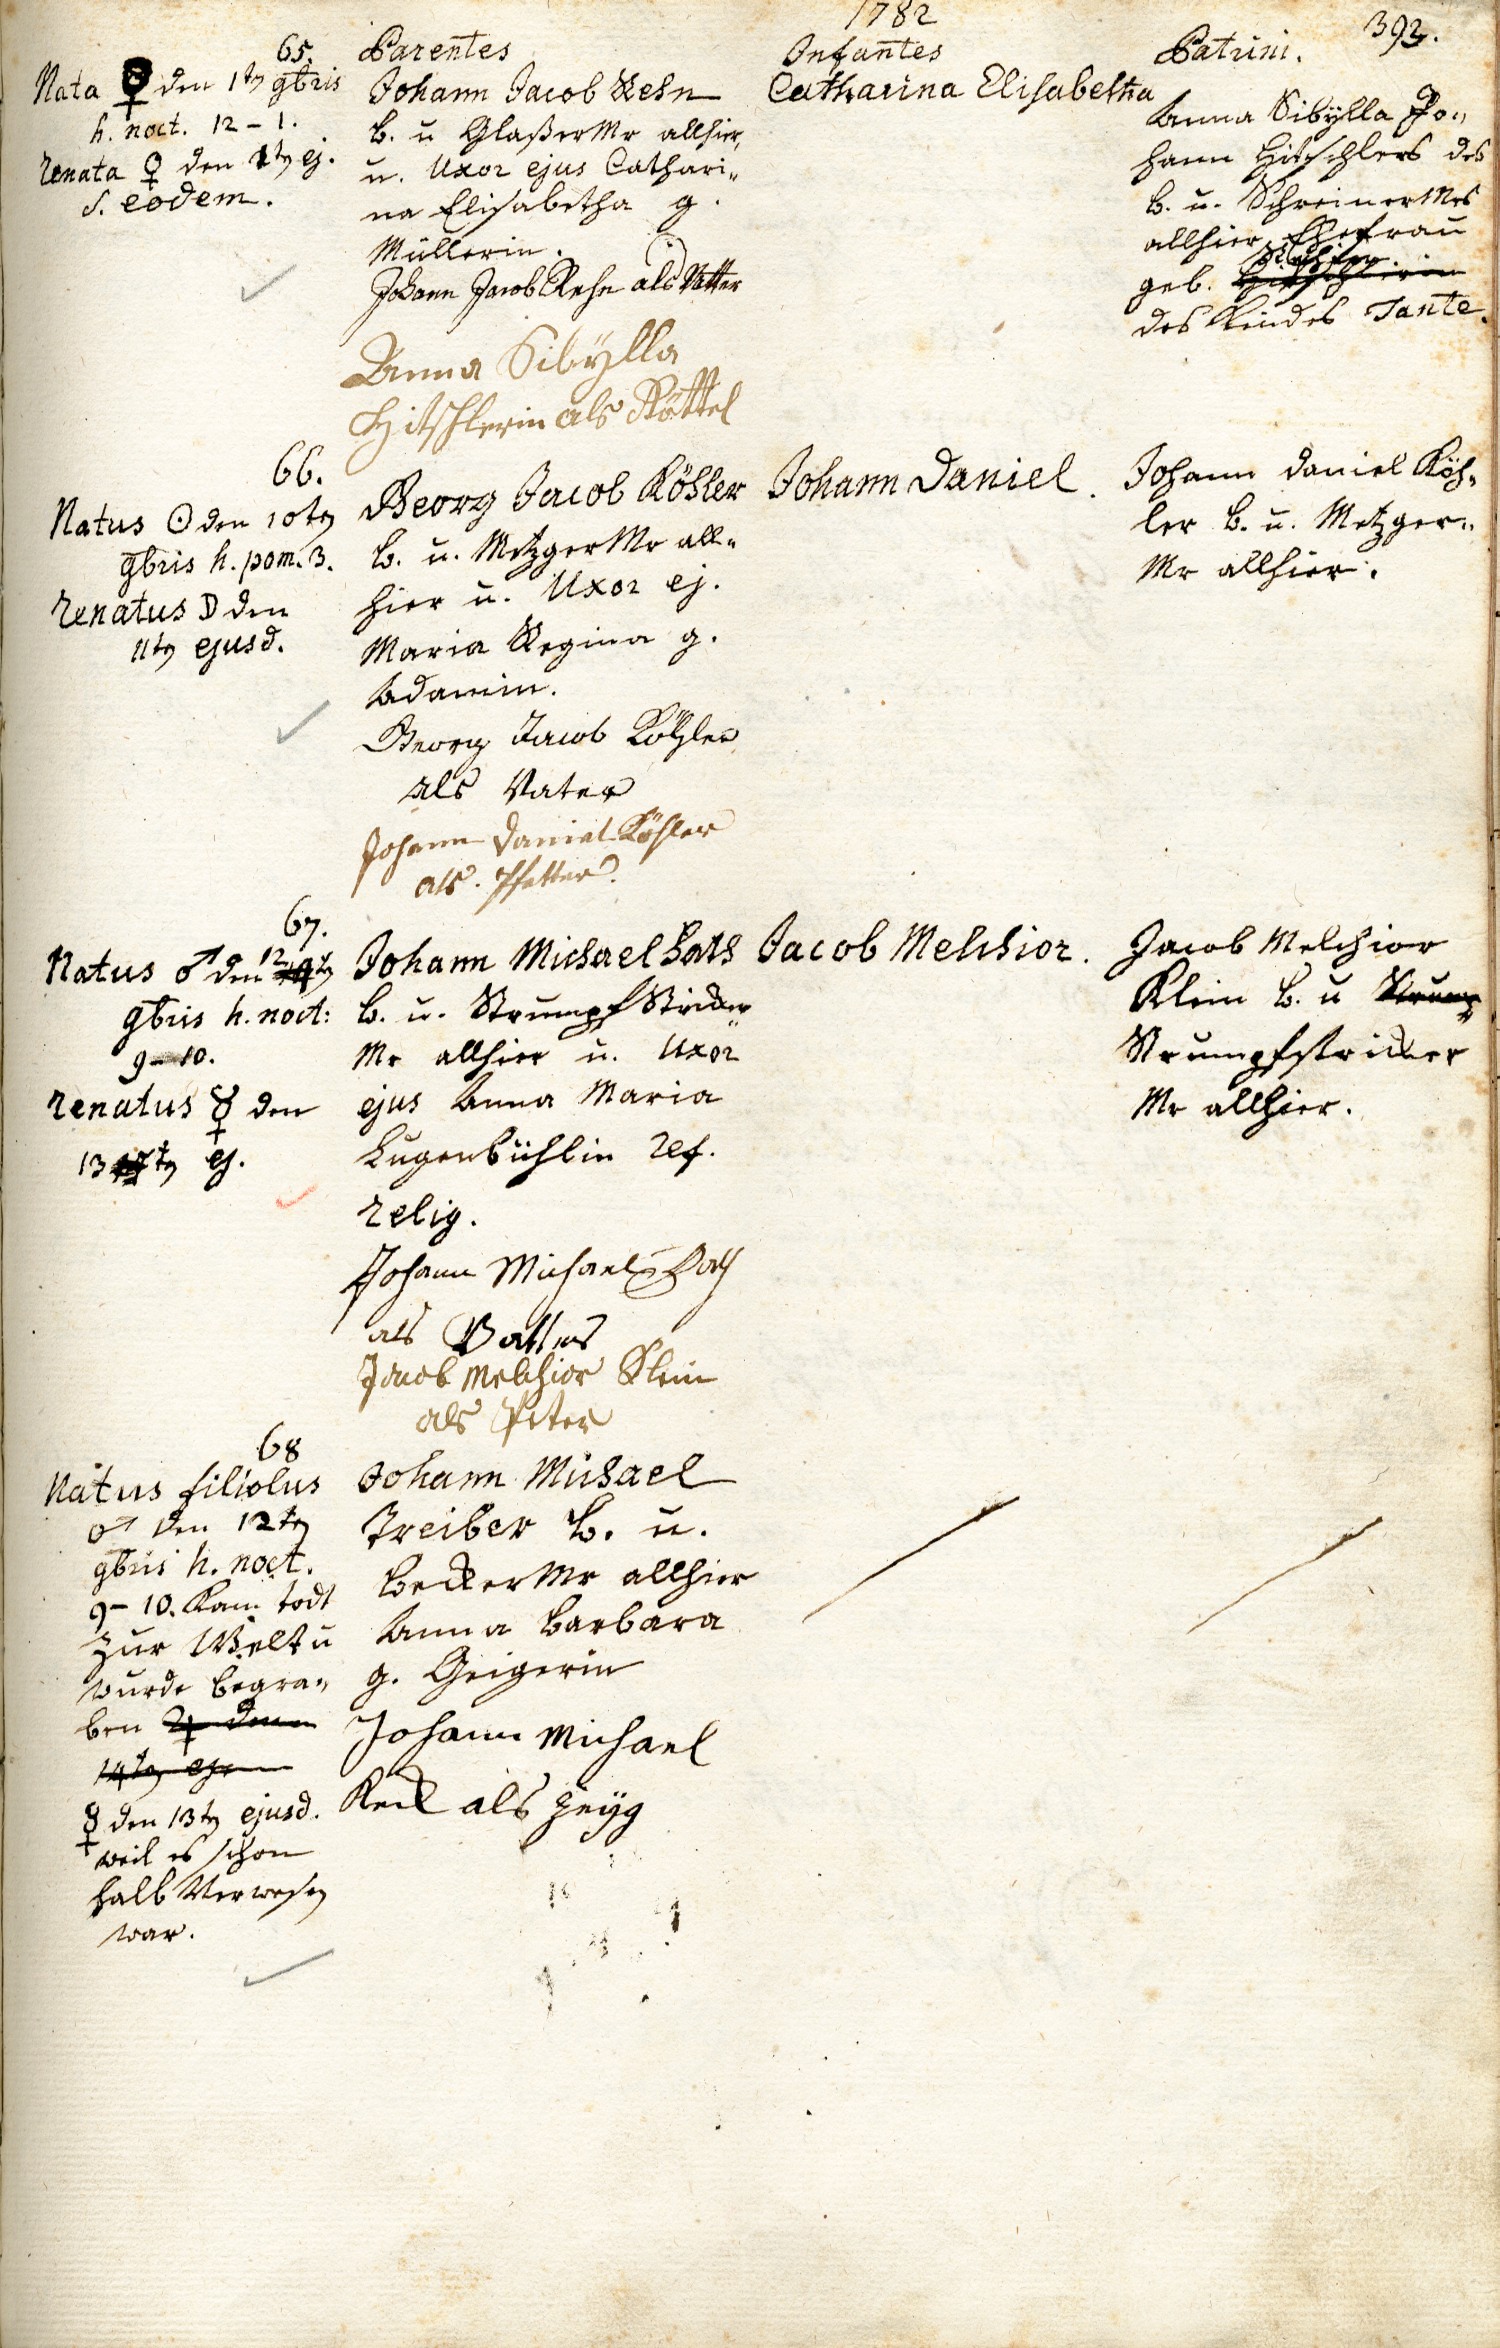 1782
393.
Parentes
Infantes
Patrini.
65.
Nata ♀ den 1t 9bris
h. noct. 12 – 1.
renata ♀ den 1t ej.
s. eodem.
Johann Jacob Rehn
b. u Glaßer Mr allhier,
u. Uxor ejus Cathari„
na Elisabetha g.
Müllerin.
Johann Jacob Rehn als Vatter
Anna Sibÿlla
Hitschlerin als Göttel
Catharina Elisabetha
Anna Sibÿlla Jo„
hann Hitschlers des
b. u. Schreiner Mrs
allhier Ehefrau
geb.
des Kindes Tante.
66.
Natus ☉ den 10t
9bris h. pom. 3.
renatus ☽ den
11t ejusd.
Georg Jacob Köhler
b. u. Metzger Mr all„
hier u. Uxor ej.
Maria Regina g.
Adamin.
Georg Jacob Köhler
als Vater
Johann Daniel Köhler
als Pfetter
Johann Daniel.
Johann Daniel Köh„
ler b. u. Metzger„
Mr allhier.
67.
Natus ♂ den 12t
9bris h. noct:
9–10.
renatus ☿ den
13t ej.
Johann Michael
b. u. Strumpf Stricker
Mr allhier u. Uxor
ejus Anna Maria
Lugenbühlin ref.
relig.
Johann Michael
als Vatter
Jacob Melchior Klein
als Peter
Jacob Melchior.
Jacob Melchior
Klein b. u Strump„
Strumpfstricker
Mr allhier.
68
Natus filiolus
♂ den 12t
9bris h. noct.
9– 10. Kam todt
zur Welt u
wurde begra„
ben ♃ den
14t ej
☿ den 13t ejusd.
weil es schon
halb Verwesen
war.
Johann Michael
Treiber b. u.
Becker Mr allhier
Anna Barbara
g. Geigerin
Johann Michael
Keck als Zeüg